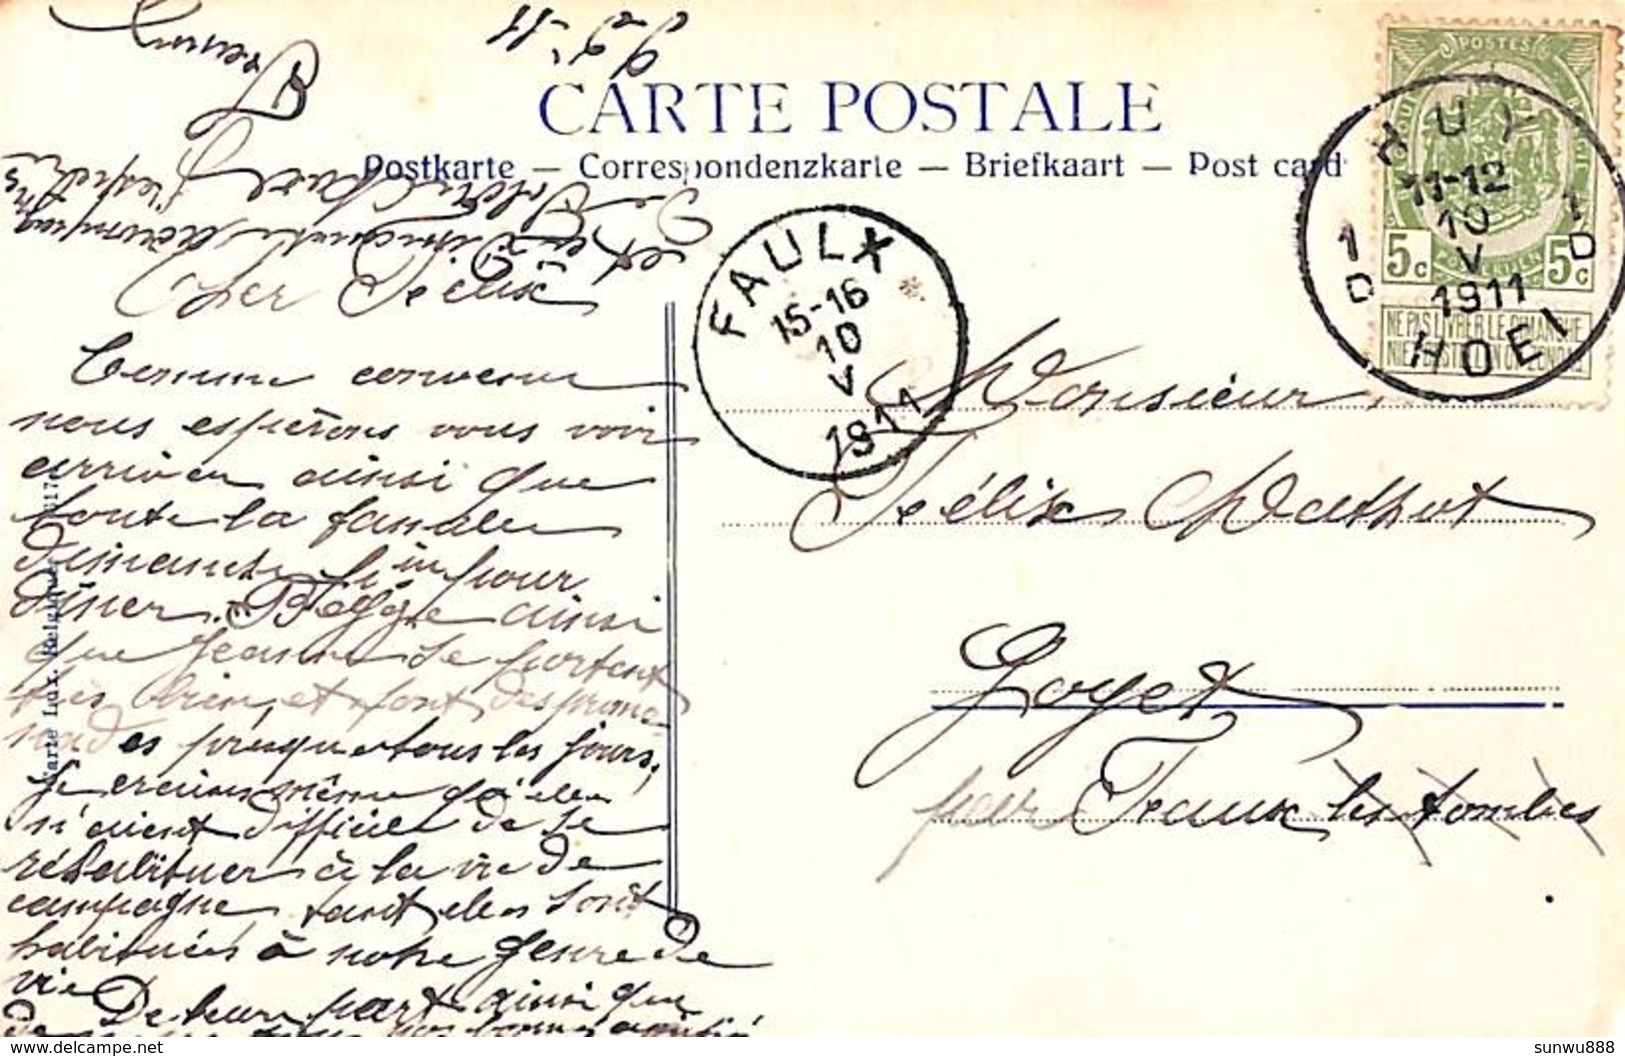 CARTE POSTALE
Postkarte — Correspondenzkarte — Briefkaart — Post card
POSTES
5c 5c
POSTERIJEN
NE PAS LIVRER LE DIMANCHE
NIET BESTELLEN OP ZONDAG
HUY
11-12
10
V
1911
HOEI
1 D
1 D
FAULX
15-16
10
V
1911
Cher Félix
Comme convenu
nous espérons vous voir
arriver ainsi que
toute la famille
dimanche pour
dîner. Begge ainsi
que Jeanne se portent
très bien, et font des prome-
nades presque tous les jours.
Je crains même qu'elles
n'aient difficile de se
réhabituer à la vie de
campagne tant elles sont
habituées à notre genre de
vie De leur part ainsi que
bonnes amitiés
Monsieur
Félix Mathot
Goyet
par Faulx les tombes
Carte Lux. Belgique
sunwu888